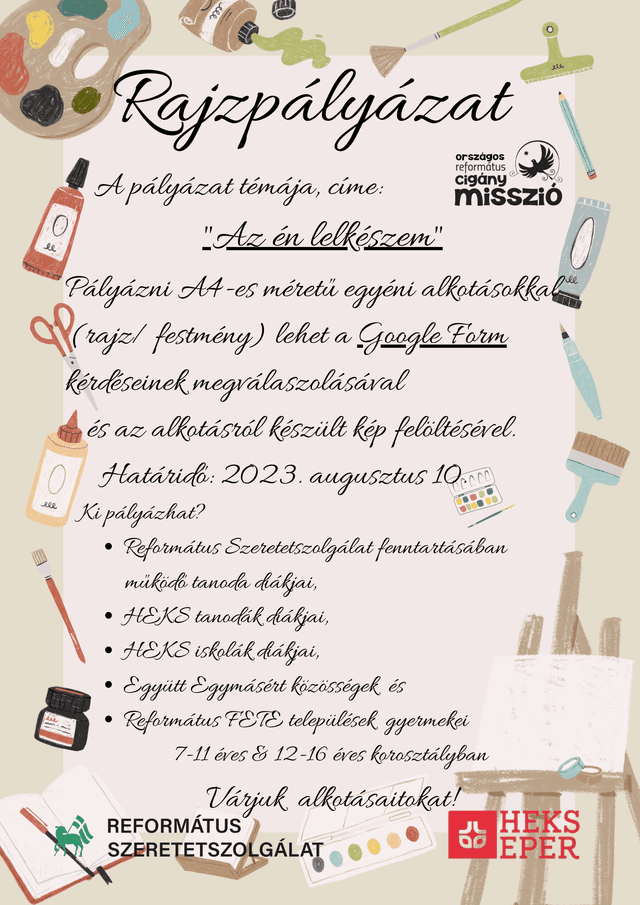 Rajzpályázat
országos
református
cigány
misszió
A pályázat témája, címe:
"Az én lelkészem"
Pályázni A4-es méretű egyéni alkotásokkal
(rajz/ festmény) lehet a Google Form
kérdéseinek megválaszolásával
és az alkotásról készült kép felöltésével.
Határidő: 2023. augusztus 10.
Ki pályázhat?
• Református Szeretetszolgálat fenntartásában
működő tanoda diákjai,
• HEKS tanodák diákjai,
• HEKS iskolák diákjai,
• Együtt Egymásért közösségek és
• Református FETE települések gyermekei
7-11 éves & 12-16 éves korosztályban
Várjuk alkotásaitokat!
REFORMÁTUS
SZERETETSZOLGÁLAT
HEKS
EPER